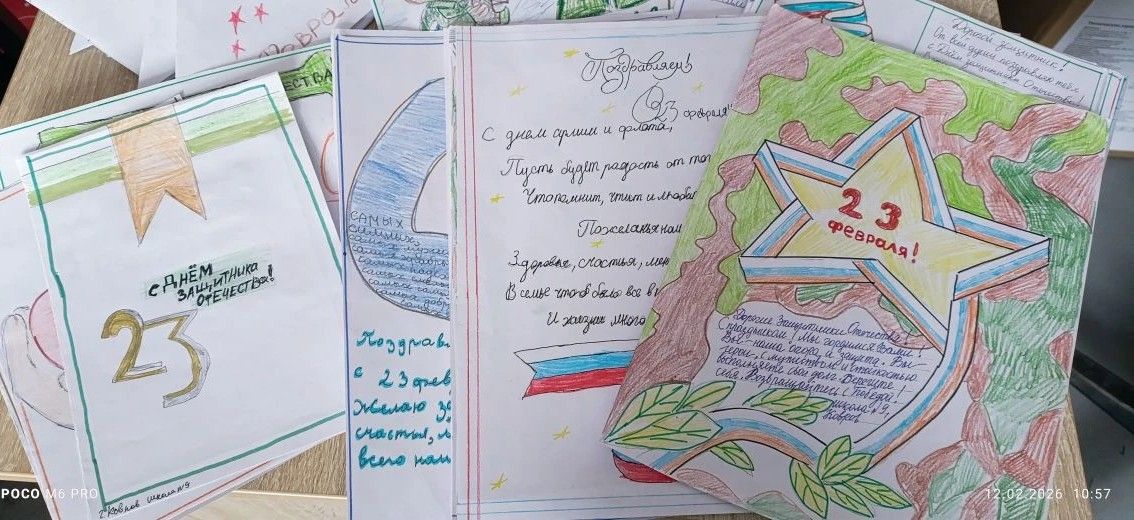 ЕСТВА
с ДНЁМ
ЗАЩИТНИКА
ОТЕЧЕСТВА!
23
г Ковров школа №9
САМЫХ
СИЛЬНЫХ
Поздрав
с 23 фев
Желаю
счастья,
всего
"Поздравляем
С 23 февраля"
С днем армии и флота,
Пусть будет радость от
Что помнит, чтит и
Пожелания
Здоровье, счастья,
В семье чтоб было все в
И жизни много
Дорогой защитник!
От всей души поздравляю тебя
с Днём защитника Отечества
23
февраля!
Дорогие Защитники Отечества
С праздником! Мы гордимся Вами!
Вы - наша опора и защита. Вы-
герои, с мужеством и стойкостью
выполняете свой долг. Берегите
себя, Возвращайтесь с Победой!
школа №9,
Ковров
POCO M6 PRO
12.02.2026 10:57